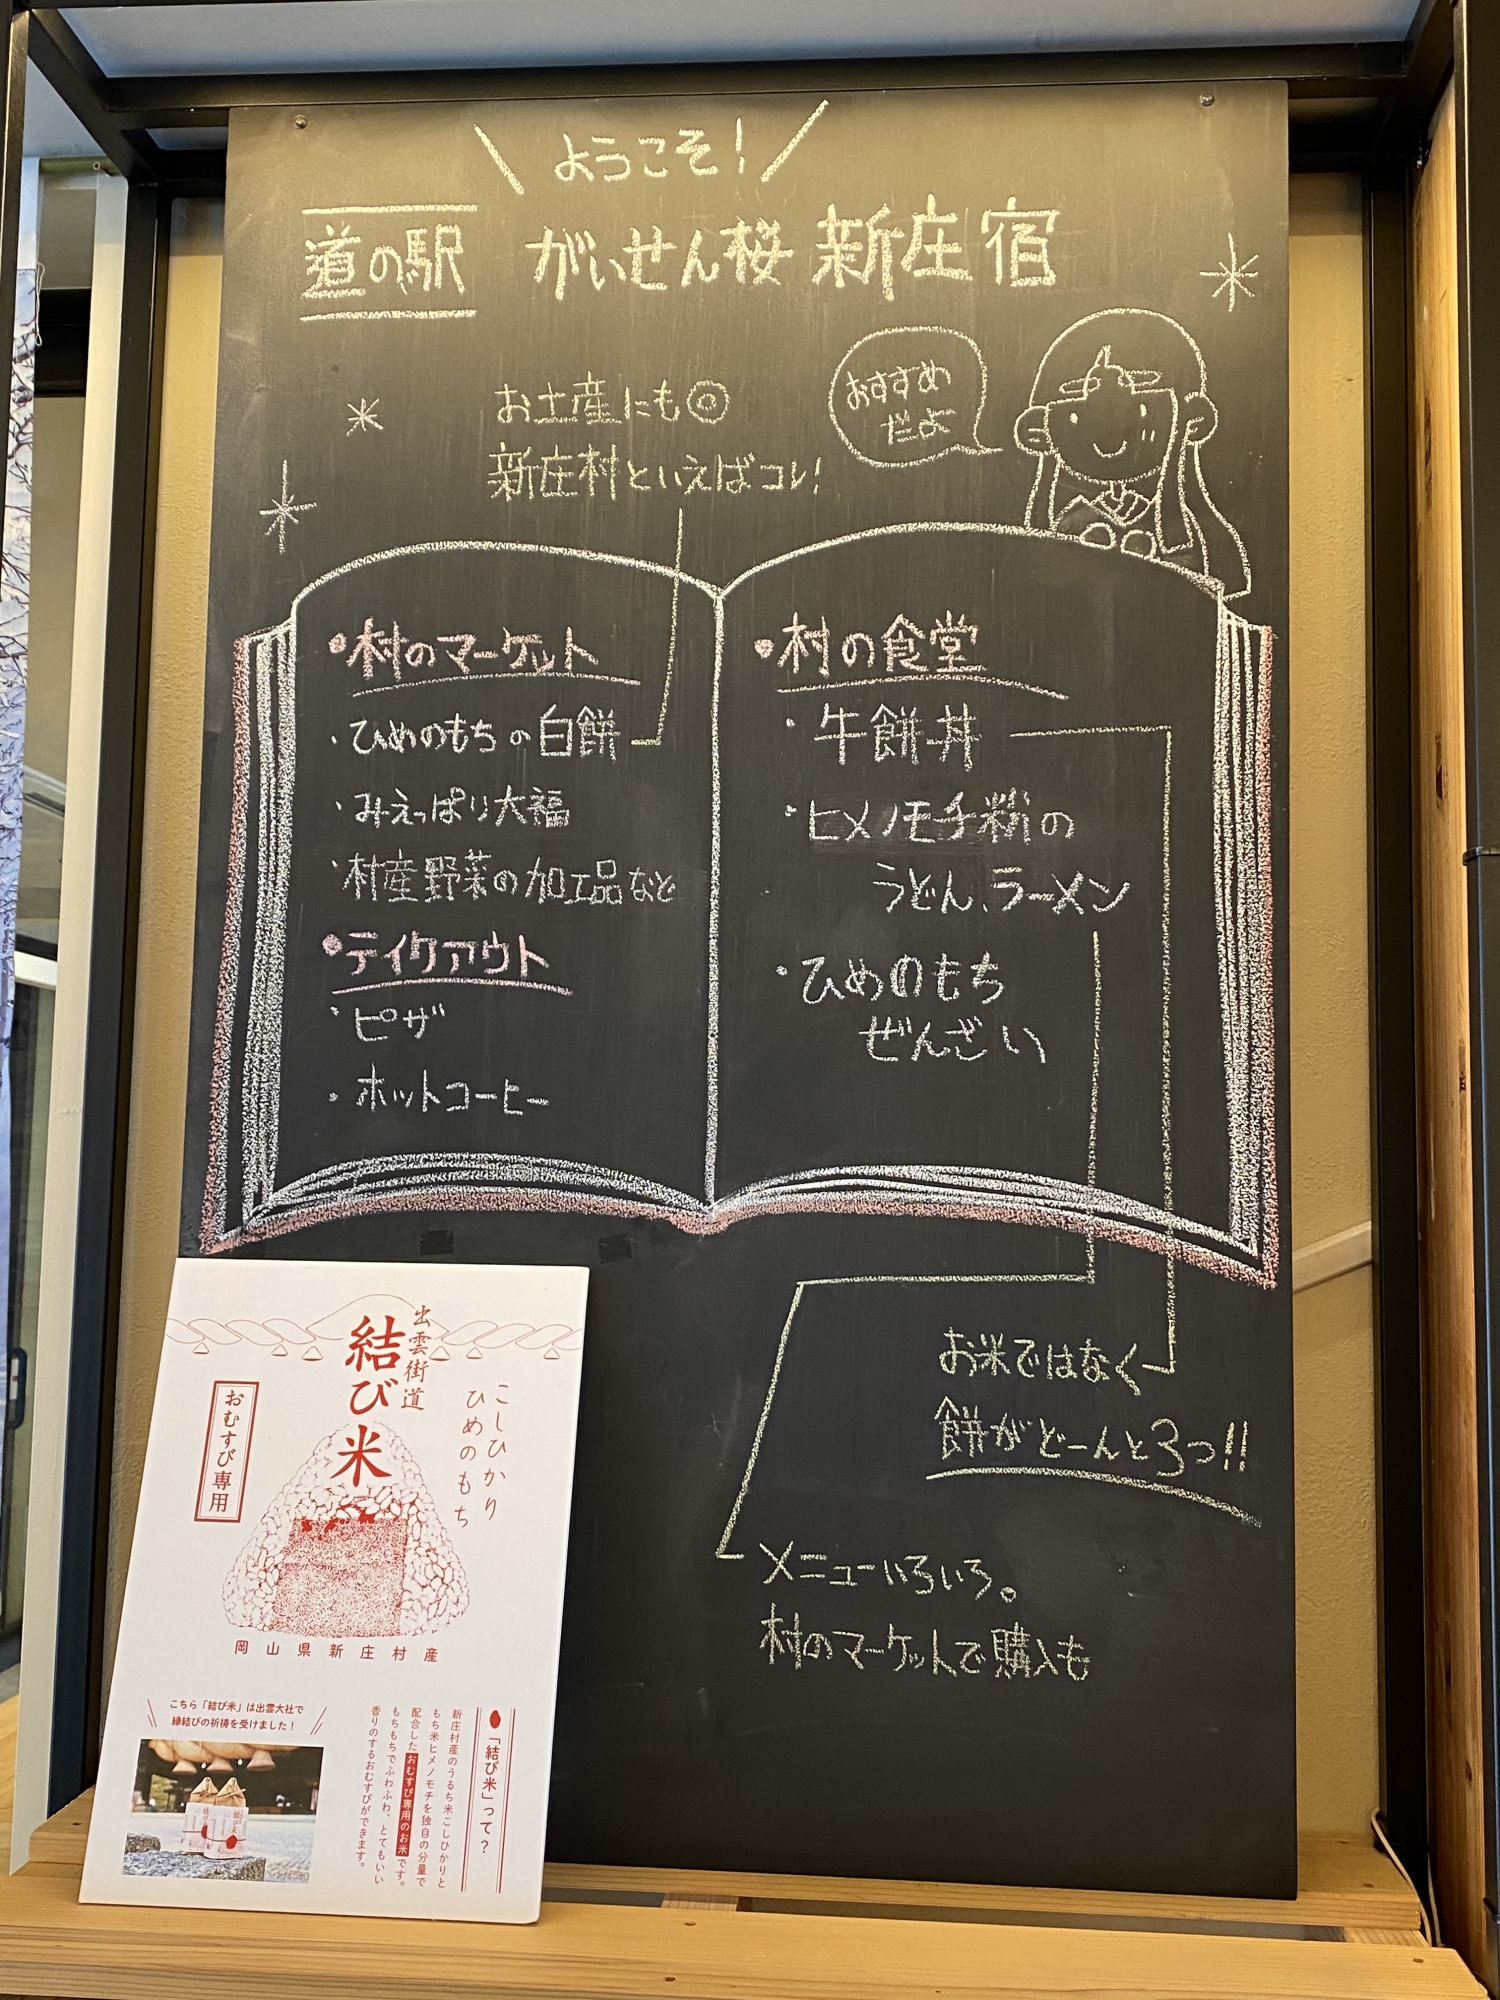 ようこそ!
道の駅 がいせん桜 新庄宿
おすすめ
だよ
お土産にも◎
新庄村といえばコレ!
・村のマーケット
・ひめのもちの白餅
・みえっぱり大福
・村産野菜の加工品など
・テイクアウト
・ピザ
・ホットコーヒー
・村の食堂
・牛餅丼
・ヒメノモチ粉の
うどん、ラーメン
・ひめのもち
ぜんざい
お米ではなく
餅がどーんと3つ!!
メニューいろいろ。
村のマーケットで購入も
出雲街道
結び米
こしひかり
ひめのもち
おむすび専用
岡山県新庄村産
こちら「結び米」は出雲大社で
縁結びの祈祷を受けました!
「結び米」って?
新庄村産のうるち米こしひかりと
もち米ヒメノモチを独自の分量で
配合したおむすび専用のお米です。
もちもちでふわふわ、とてもいい
香りのするおむすびができます。